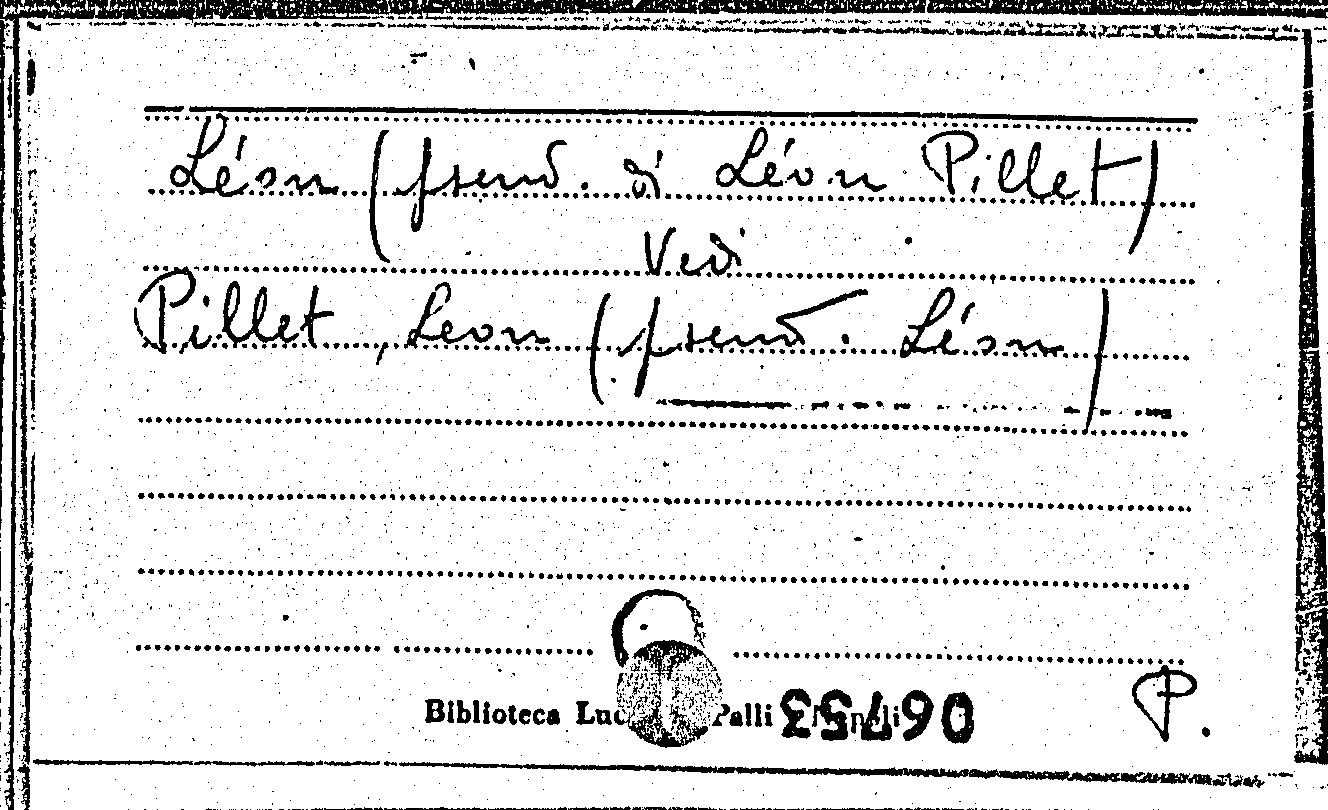 Léon (pseud. di Léon Pillet)
Vedi
Pillet, Leon (pseud. Léon)
Biblioteca Palli
P.